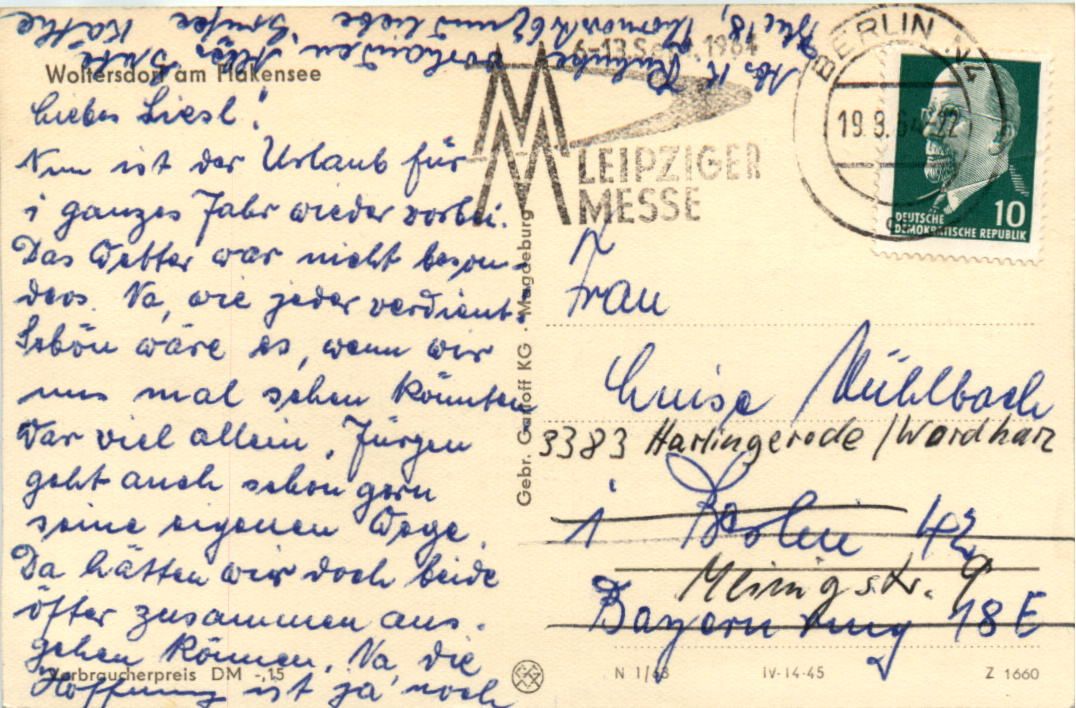 Woltersdorf am Flakensee
Liebes Liesl!
Nun ist der Urlaub für
1 ganzes Jahr wieder vorbei.
Das Wetter war nicht beson-
ders. Na, wie jeder verdient.
Schön wäre es, wenn wir
uns mal sehen könnten
War viel allein, Jürgen
geht auch schon gern
seine eigenen Wege.
Da hätten wir doch beide
öfter zusammen aus-
gehen können. Na die
Hoffnung ist ja noch
vorhanden. Alles Gute
und liebe Grüße Käthe
Abs. K.
Verbraucherpreis DM -,15
Gebr. Garloff KG · Magdeburg
6.-13. Sept. 1964
MM
LEIPZIGER
MESSE
BERLIN N4
19.8.64-22
DEUTSCHE
DEMOKRATISCHE REPUBLIK
10
Frau
Luise Mühlbach
3383 Harlingerode/Nordharz
1 Berlin 42
Meinigstr. 9
Bayernring 18E
N 1/63 IV-14-45 Z 1660